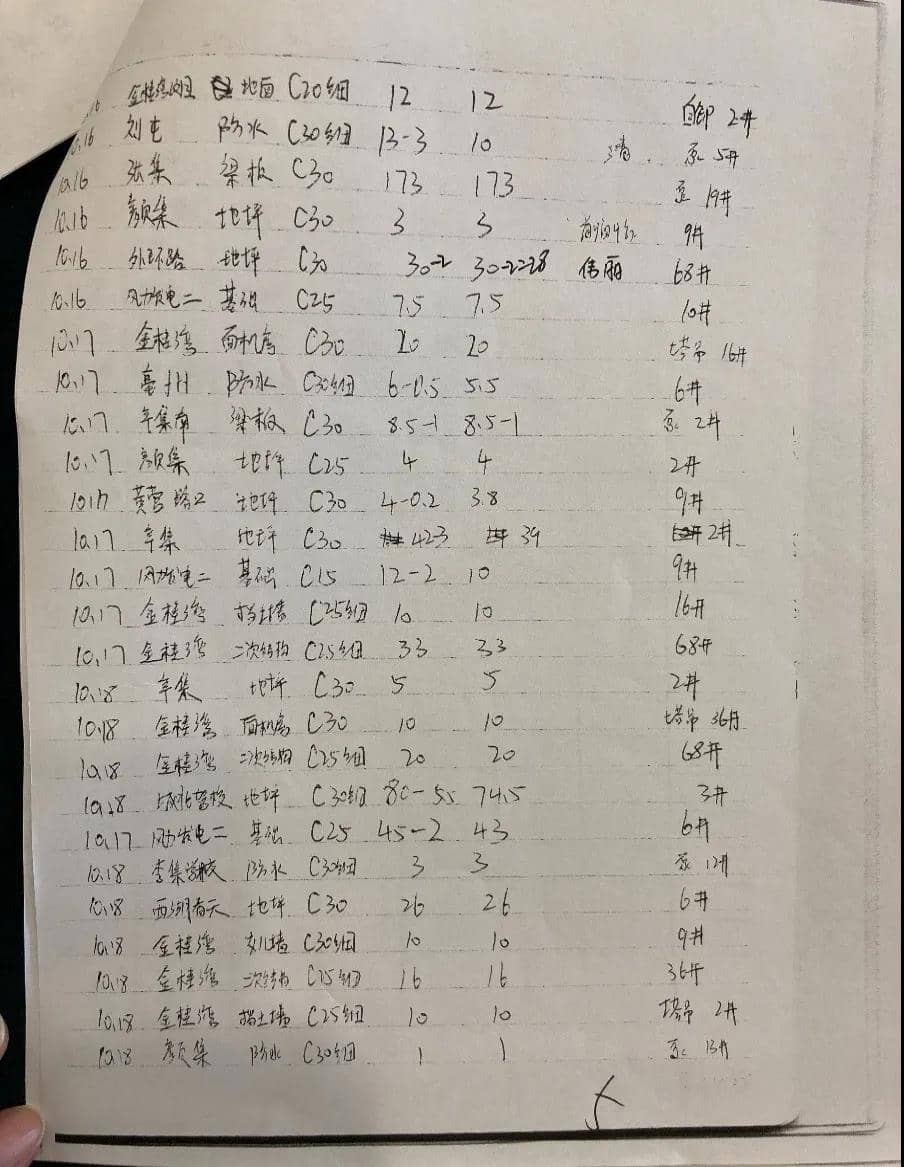 金桂湾 地面 C20细 12 12 自卸 2#
10.16 刘屯 防水 C30细 13-3 10 泵 5#
10.16 张集 梁板 C30 173 173 泵 19#
10.16 颜集 地坪 C30 3 3 9#
10.16 外环路 地坪 C30 30-2 30-2=28 伟丽 68#
10.16 风力发电二 基础 C25 7.5 7.5 10#
10.17 金桂湾 面机房 C30 20 20 塔吊 16#
10.17 亳州 防水 C30细 6-0.5 5.5 6#
10.17 辛集南 梁板 C30 8.5-1 8.5-1 泵 2#
10.17 颜集 地坪 C25 4 4 2#
10.17 黄营塔2 地坪 C30 4-0.2 3.8 9#
10.17 辛集 地坪 C30 42-3 39 2#
10.17 风力发电二 基础 C15 12-2 10 9#
10.17 金桂湾 挡土墙 C25细 10 10 16#
10.17 金桂湾 二次结构 C25细 33 33 68#
10.18 辛集 地坪 C30 5 5 2#
10.18 金桂湾 面机房 C30 10 10 塔吊 36#
10.18 金桂湾 二次结构 C25细 20 20 68#
10.18 地坪 C30细 80-5.5 74.5 3#
10.17 风力发电二 基础 C25 45-2 43 6#
10.18 李集 防水 C30细 3 3 泵 12#
10.18 西湖春天 地坪 C30 26 26 6#
10.18 金桂湾 女儿墙 C30细 10 10 9#
10.18 金桂湾 二次结构 C25细 16 16 36#
10.18 金桂湾 挡土墙 C25细 10 10 塔吊 2#
10.18 颜集 防水 C30细 1 1 泵 13#
5